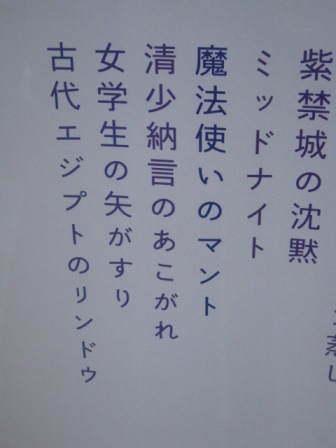 紫禁城の沈黙
ミッドナイト
魔法使いのマント
清少納言のあこがれ
女学生の矢がすり
古代エジプトのリンドウ